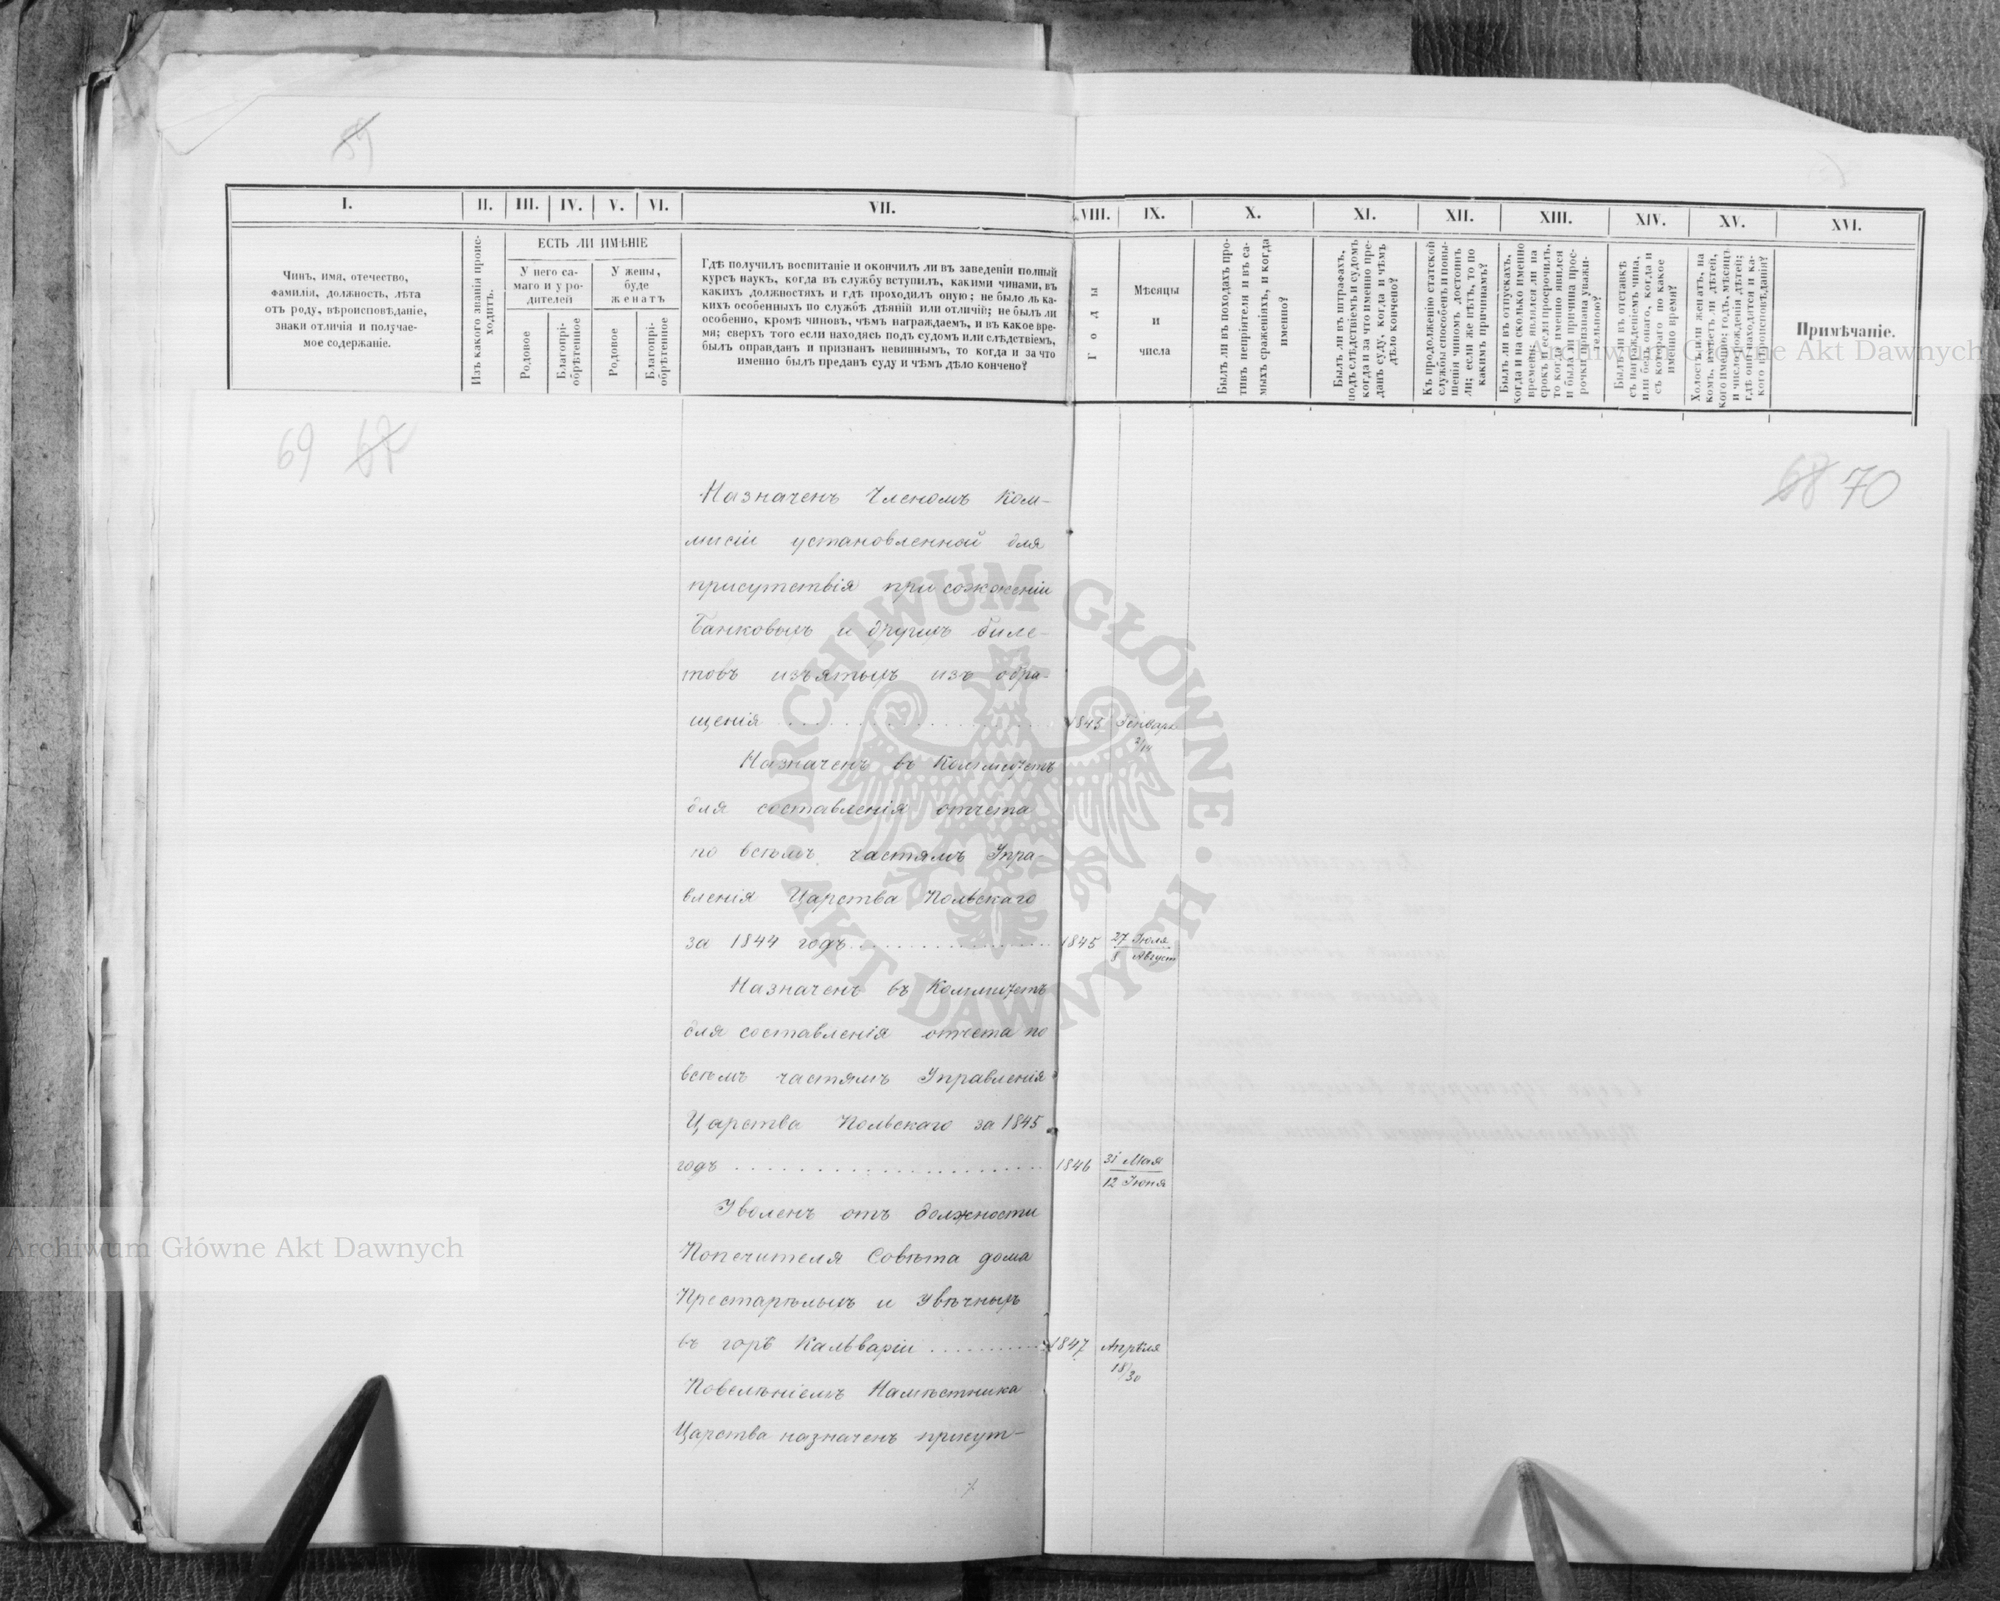 59
I. II. III. IV. V. VI. VII. VIII. IX. X. XI. XII. XIII. XIV. XV. XVI.
Чинъ, имя, отечество,
фамилія, должность, лѣта
отъ роду, вѣроисповѣданіе,
знаки отличія и получае-
мое содержаніе.
Изъ какого званія проис-
ходитъ.
ЕСТЬ ЛИ ИМѢНІЕ
У него са-
маго и у ро-
дителей
У жены,
буде
женатъ
Родовое
Благопрі-
обрѣтенное
Родовое
Благопрі-
обрѣтенное
Гдѣ получилъ воспитаніе и окончилъ ли въ заведеніи полный
курсъ наукъ, когда въ службу вступилъ, какими чинами, въ
какихъ должностяхъ и гдѣ проходилъ оную; не было ль ка-
кихъ особенныхъ по службѣ дѣяній или отличій; не былъ ли
особенно, кромѣ чиновъ, чѣмъ награждаемъ, и въ какое вре-
мя; сверхъ того если находясь подъ судомъ или слѣдствіемъ,
былъ оправданъ и признанъ невиннымъ, то когда и за что
именно былъ преданъ суду и чѣмъ дѣло кончено?
Годы
Мѣсяцы
и
числа
Былъ ли въ походахъ про-
тивъ непріятеля и въ са-
мыхъ сраженіяхъ, и когда
именно?
Былъ ли въ штрафахъ,
подъ слѣдствіемъ и судомъ
когда и за что именно пре-
данъ суду, когда и чѣмъ
дѣло кончено?
Къ продолженію статской
службы способенъ и повы-
шенія чиномъ достоинъ
ли; если же нѣтъ, то по
какимъ причинамъ?
Былъ ли въ отпускахъ,
когда и на сколько именно
времени, явился ли на
срокъ и если просрочилъ,
то когда именно явился
и была ли причина прос-
рочки признана уважи-
тельною?
Былъ ли въ отставкѣ
съ награжденіемъ чина,
или безъ онаго, когда и
съ котораго по какое
именно время?
Холостъ или женатъ, на
комъ, имѣетъ ли дѣтей,
кого именно; годъ, мѣсяцъ
и число рожденія дѣтей;
гдѣ они находятся и ка-
кого вѣроисповѣданія?
Примѣчаніе.
Archiwum Główne Akt Dawnych
69 67
68 70
Назначенъ Членомъ Ком-
мисіи установленной для
присутствія при сожженіи
Банковыхъ и другихъ биле-
товъ изъятыхъ изъ обра-
щенія 1845 Января
2/14
Назначенъ въ Коммитетъ
для составленія отчета
по всѣмъ частямъ Упра-
вленія Царства Польскаго
за 1844 годъ 1845 27 Іюля
8 Август
Назначенъ въ Коммитетъ
для составленія отчета по
всѣмъ частямъ Управленія
Царства Польскаго за 1845
годъ 1846 31 Мая
12 Іюня
Уволенъ отъ должности
Попечителя Совѣта дома
Престарѣлыхъ и Увѣчныхъ
въ горѣ Кальваріи 1847 Апрѣля
18/30
Повелѣніемъ Намѣстника
Царства назначенъ присут-
ARCHIWUM GŁÓWNE AKT DAWNYCH
Archiwum Główne Akt Dawnych